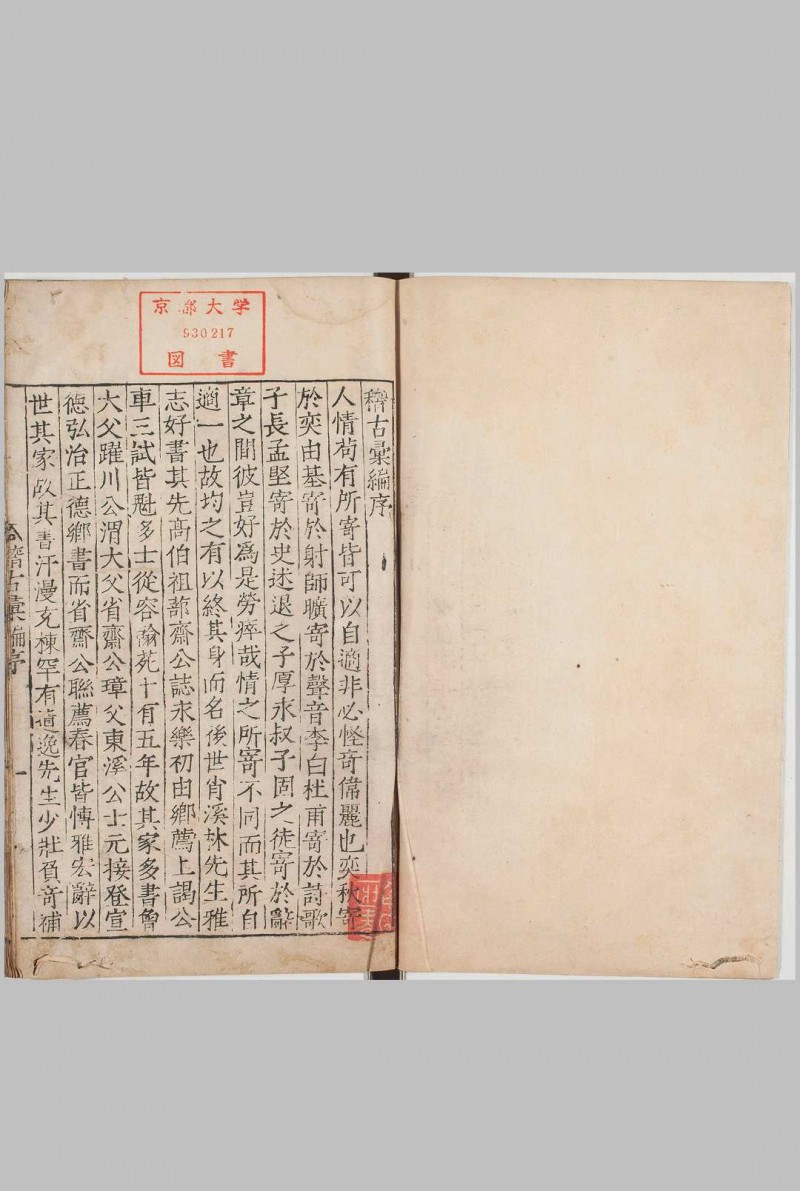 京都大学
930217
図書
稽古彙編序
人情苟有所寄皆可以自適非必怪竒偉麗也奕秋寄
於奕由基寄於射師曠寄於聲音李白杜甫寄於詩歌
子長孟堅寄於史述退之子厚永叔子固之徒寄於辭
章之間彼豈好爲是勞瘁哉情之所寄不同而其所自
適一也故均之有以終其身而名後世肖溪林先生雅
志好書其先高伯祖蔀齋公誌永樂初由鄉薦上謁公
車三試皆魁多士從容翰苑十有五年故其家多書曾
大父躍川公渭大父省齋公璋父東溪公士元接登宣
德弘治正德鄉書而省齋公聯薦春官皆博雅宏辭以
世其家故其書汗漫充棟罕有遺逸先生少壯負竒補
稽古彙編序
一